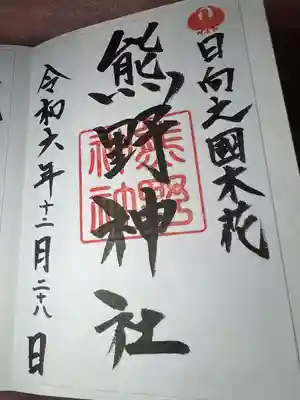 日向之國木花
熊野神社
熊野
神社
令和六年十二月二十八日